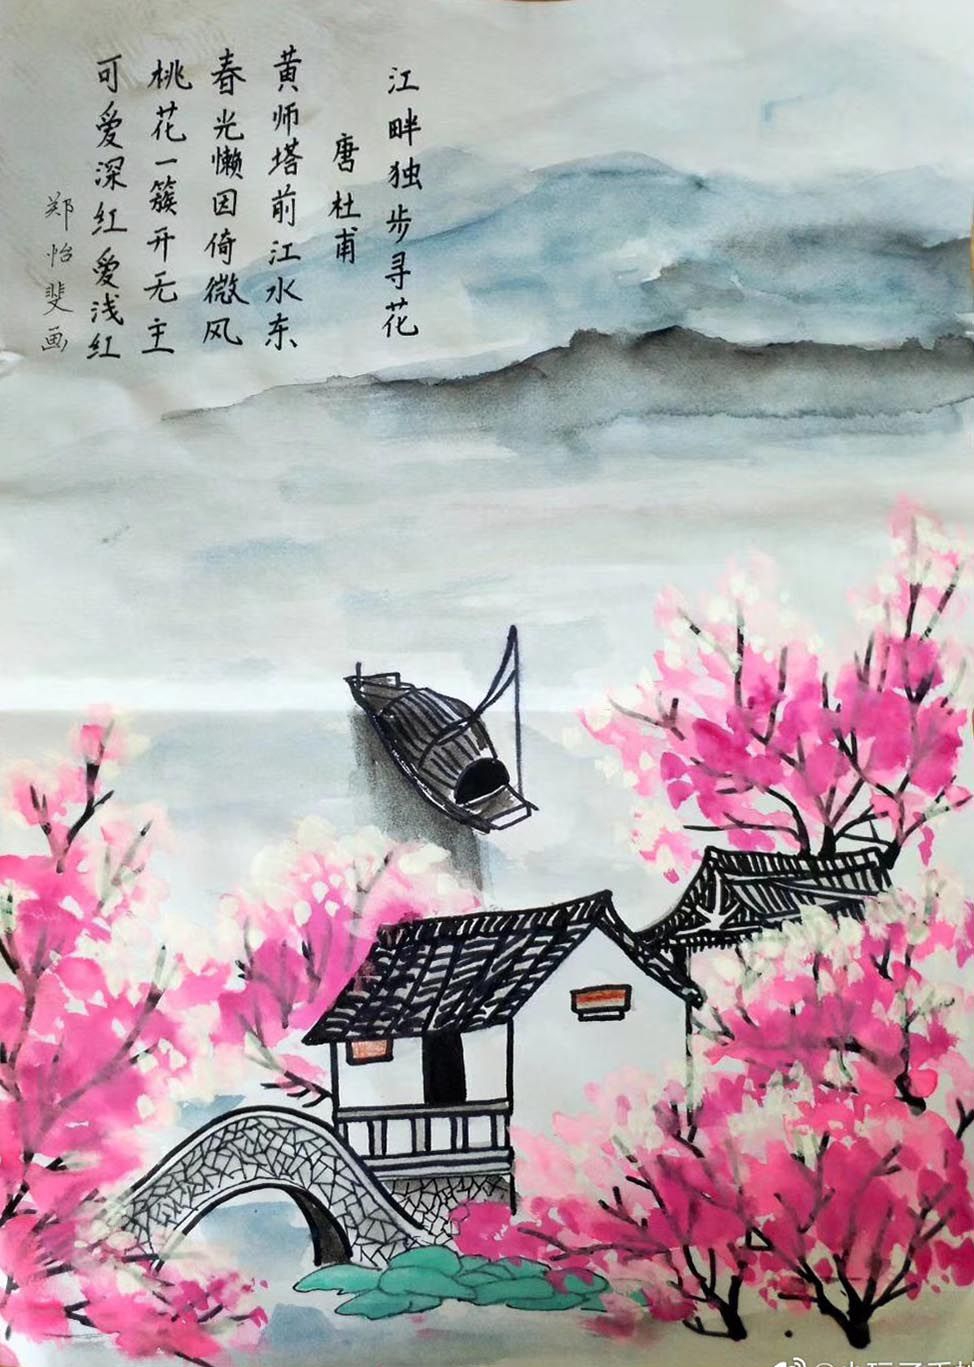 江畔独步寻花
唐杜甫
黄师塔前江水东
春光懒因倚微风
桃花一簇开无主
可爱深红爱浅红
郑怡斐画